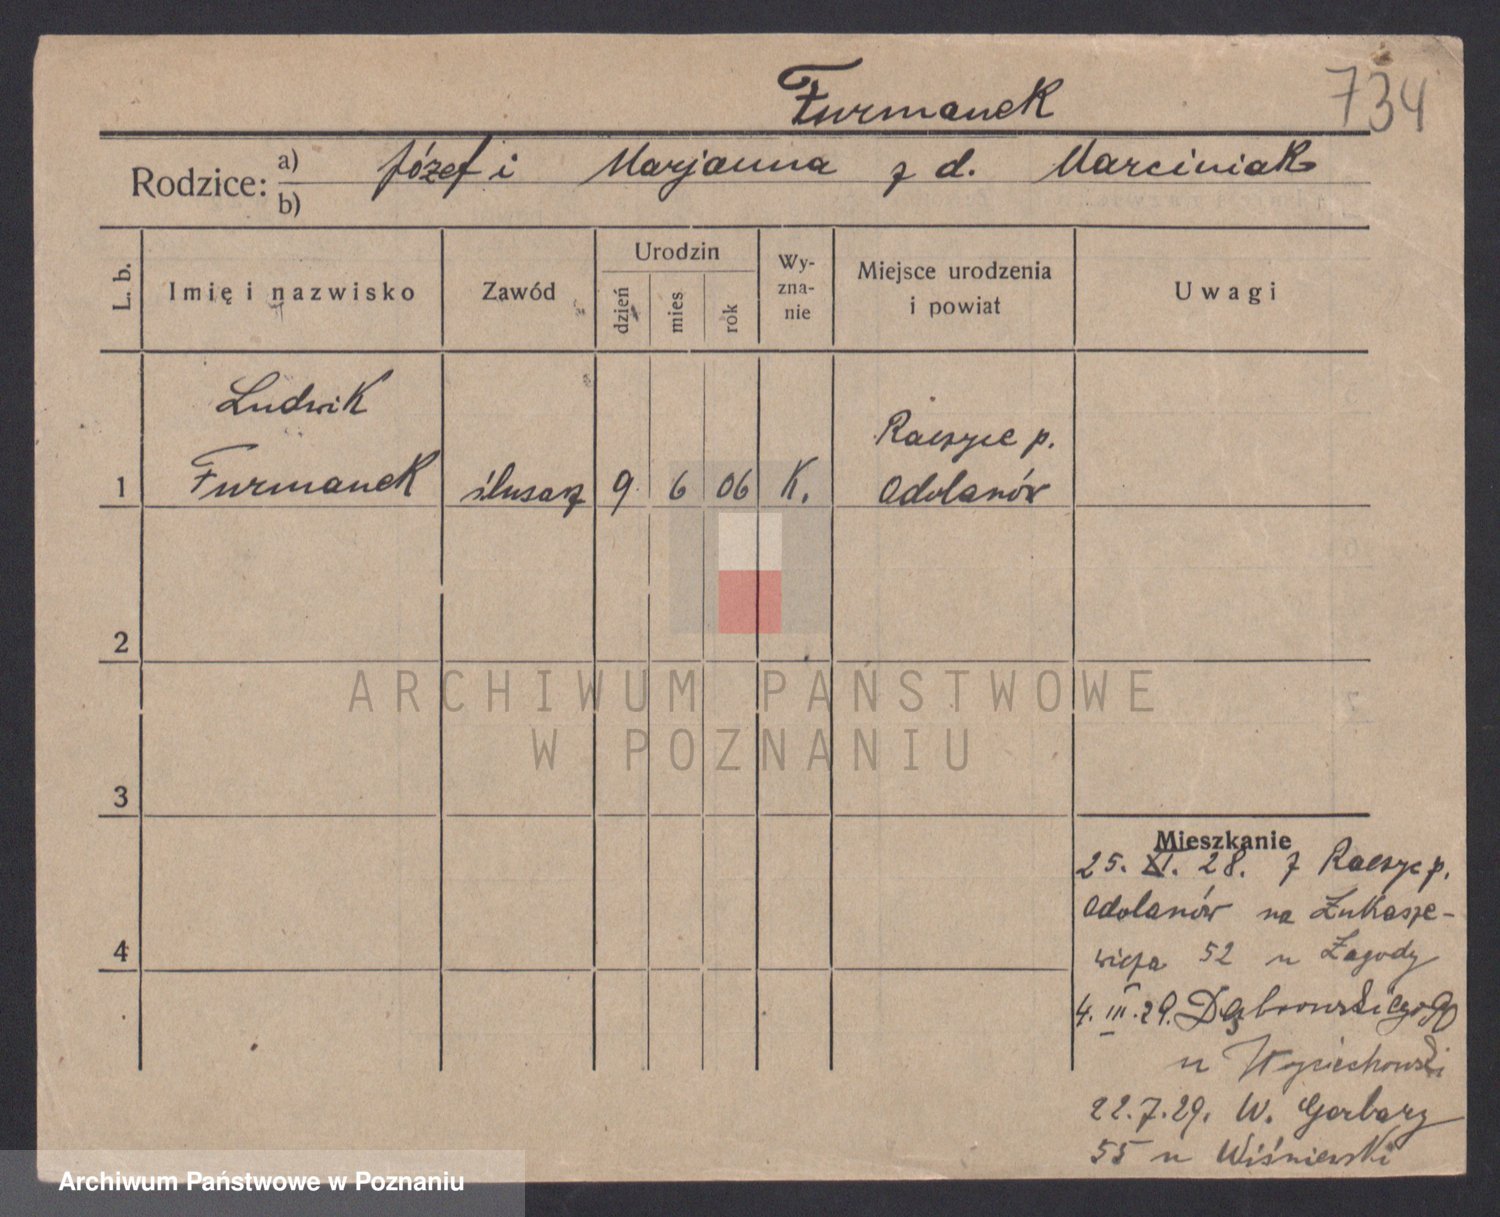 Furmanek
734
Rodzice: a) Józef i Marjanna z d. Marciniak
b)
L. b.
Imię i nazwisko
Zawód
Urodzin
dzień
mies
rok
Wy-
zna-
nie
Miejsce urodzenia
i powiat
Uwagi
Ludwik
Raszyce p.
1 Furmanek ślusarz 9 6 06 K. Odolanów
2
3
4
Mieszkanie
25. XI. 28. z Raszyc p.
Odolanów na Łukasze-
wicza 52 u Zagody
4. III. 29. Dąbrowskiego
u Wojciechowski
22.7.29. W. Garbary
55 u Wiśniewski
ARCHIWUM PAŃSTWOWE
W POZNANIU
Archiwum Państwowe w Poznaniu